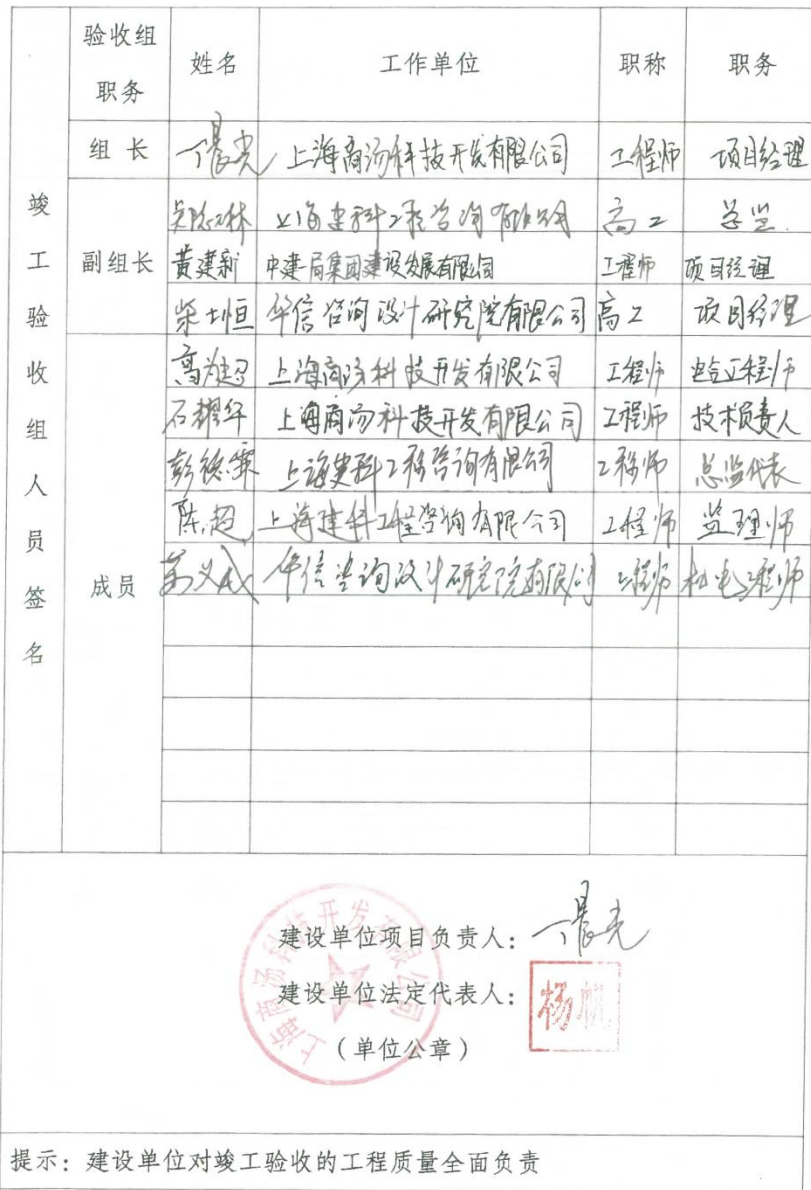 验收组职务 姓名 工作单位 职称 职务
竣工验收组人员签名
组长 丁晨光 上海商汤科技开发有限公司 工程师 项目经理
副组长
上海建科工程咨询有限公司 高工 总监
黄建新 中建一局集团建设发展有限公司 工程师 项目经理
柴士恒 华信咨询设计研究院有限公司 高工 项目经理
成员
高为超 上海商汤科技开发有限公司 工程师
石耀华 上海商汤科技开发有限公司 工程师 技术负责人
彭德霖 上海建科工程咨询有限公司 工程师 总监代表
陈超 上海建科工程咨询有限公司 工程师 监理师
华信咨询设计研究院有限公司 工程师 机电工程师
建设单位项目负责人：丁晨光
建设单位法定代表人：杨帆
（单位公章）
上海商汤科技开发有限公司
提示：建设单位对竣工验收的工程质量全面负责